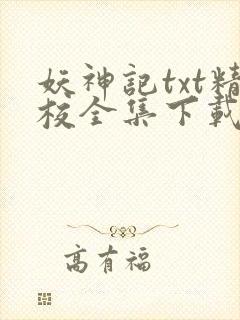 妖神記txt精
校全集下載
高有福